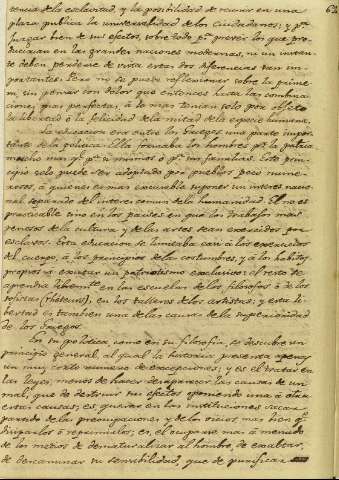 tencia de la esclavitud, y la posibilidad de reunir en una
plaza publica la universalidad de los ciudadanos; y pª
juzgar bien de sus efectos, sobre todo pª prever los que pro-
ducirian en las grandes naciones modernas, ni un instan-
te deben perderse de vista estas dos diferencias tan im-
portantes. Pero no se puede reflexionar sobre la prime-
ra, sin pensar con dolor que entonces hasta las combinacio-
nes mas perfectas, a lo mas tenian solo por objeto
la libertad o la felicidad de la mitad de la especie humana.
La educacion era entre los Griegos una parte impor-
tante de la politica. Ella formaba los hombres pª la patria
mucho mas qᵉ pª si mismos ó pª sus familias. Este prin-
cipio solo puede ser adoptado por pueblos poco nume-
rosos, á quienes es mas escusable suponer un interes nacio-
nal separado del interes comun de la humanidad. El no es
practicable sino en los paises en que los trabajos mas
penosos de la cultura y de las artes sean exercidos por
esclavos. Esta educacion se limitaba casi á los exercicios
del cuerpo, á los principios de las costumbres, y á los habitos
propios á excitar un patriotismo exclusivo: el resto se
aprendia libremᵗᵉ en las escuelas de los filosofos ó de los
sofistas (rheteurs), en los talleres de los artistas; y esta li-
bertad es tambien una de las causas de la superioridad
de los Griegos.
En su politica, como en su filosofia, se descubre un
principio general, al qual la historia presenta apenas
un muy corto numero de excepciones; y es el tratar en
las leyes, menos de hacer desaparecer las causas de un
mal, que de destruir sus efectos oponiendo una á otra
estas causas; es, querer en las instituciones sacar
partido de las preocupaciones y de los vicios, mas bien qᵉ
disiparlos ó reprimirlos; es, el ocuparse mas á menudo
de los medios de desnaturalizar al hombre, de exaltar,
de descaminar su sensibilidad, que de purificar